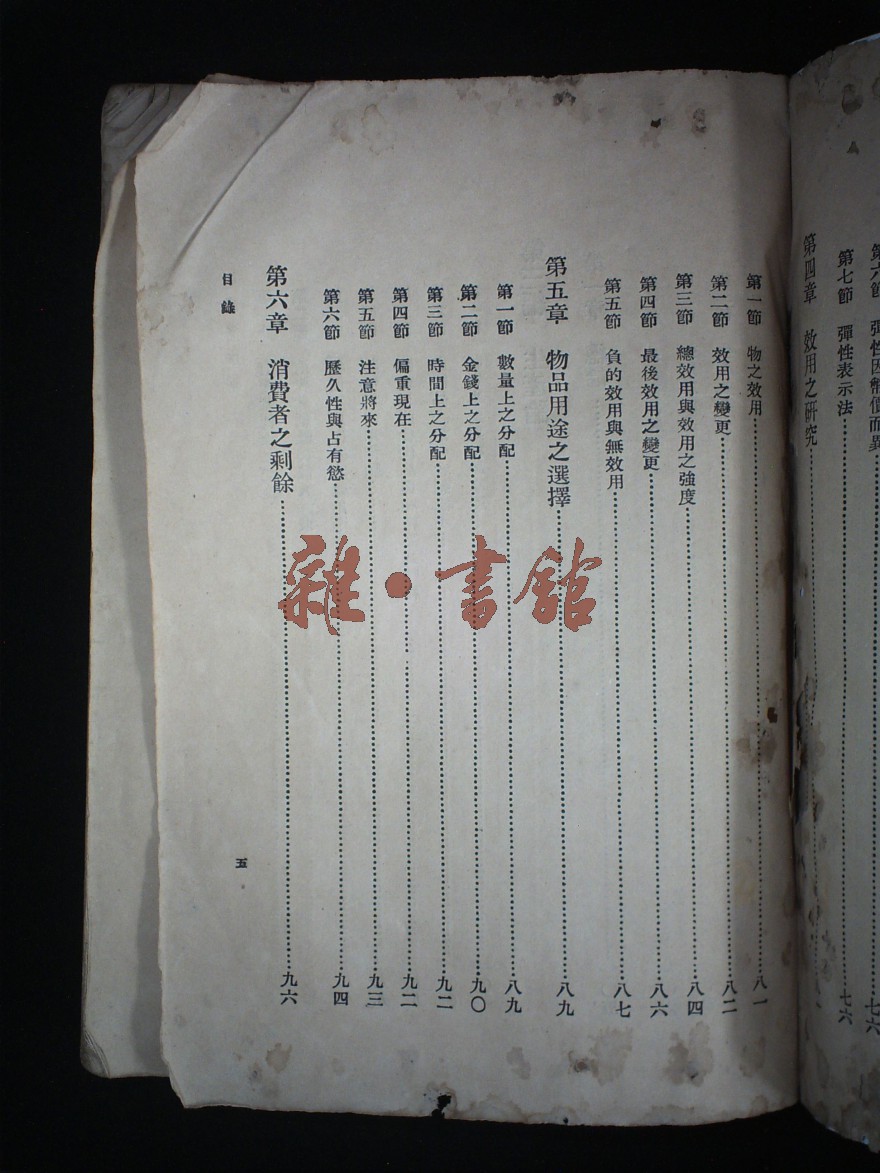 第六節 彈性因幣價而異 七六
第七節 彈性表示法 七六
第四章 效用之研究
第一節 物之效用 八一
第二節 效用之變更 八二
第三節 總效用與效用之強度 八四
第四節 最後效用之變更 八六
第五節 負的效用與無效用 八七
第五章 物品用途之選擇 八九
第一節 數量上之分配 八九
第二節 金錢上之分配 九〇
第三節 時間上之分配 九二
第四節 偏重現在 九二
第五節 注意將來 九三
第六節 歷久性與占有慾 九四
第六章 消費者之剩餘 九六
目錄
五
雜·書館